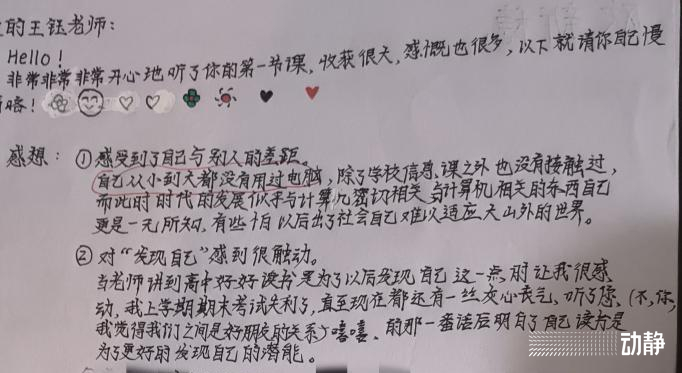 的王钰老师：
Hello！
非常非常非常开心地听了你的第一节课，收获很大，感慨也很多，以下就请你自己慢
咯！
感想：①感受到了自己与别人的差距。
自己从小到大都没有用过电脑，除了学校信息课之外也没有接触过，
而此时时代的发展似乎与计算机密切相关，与计算机相关的东西自己
更是一无所知，有些怕以后出了社会自己难以适应大山外的世界。
②对“发现自己”感到很触动。
当老师讲到高中好好读书是为了以后发现自己这一点时让我很感
动，我上学期期末考试失利了，直至现在都还有一丝灰心丧气，听了您、（不，你，
我觉得我们之间是好朋友的关系）嘻嘻、的那一番话后明白了自己读书是
为了更好的发现自己的潜能。
动静